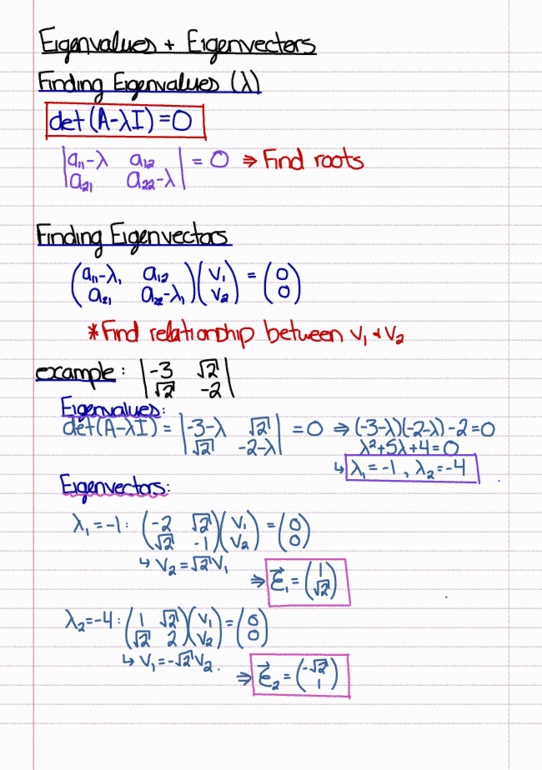 Eigenvalues + Eigenvectors
Finding Eigenvalues (λ)
det(A-λI)=0
|a₁₁-λ a₁₂| = 0 ⇒ Find roots
|a₂₁ a₂₂-λ|
Finding Eigenvectors
(a₁₁-λ₁ a₁₂)(v₁) = (0)
(a₂₁ a₂₂-λ₁)(v₂) (0)
*Find relationship between v₁ & v₂
example: |-3 √2|
|√2 -2|
Eigenvalues:
det(A-λI) = |-3-λ √2| = 0 ⇒ (-3-λ)(-2-λ)-2=0
|√2 -2-λ| λ²+5λ+4=0
↳ λ₁=-1, λ₂=-4
Eigenvectors:
λ₁=-1: (-2 √2)(v₁) = (0)
(√2 -1)(v₂) (0)
↳ v₂=√2v₁
⇒ ε⃗₁ = (1)
(√2)
λ₂=-4: (1 √2)(v₁) = (0)
(√2 2)(v₂) (0)
↳ v₁=-√2v₂.
⇒ ε⃗₂ = (-√2)
(1)